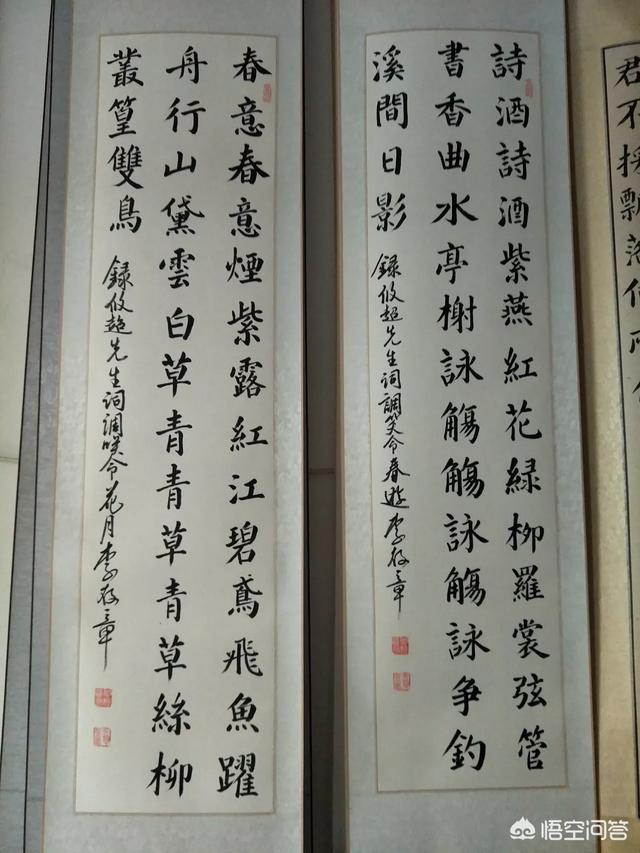 君不採飄落何所
詩酒詩酒紫燕紅花緑柳羅裳弦管
書香曲水亭榭詠觴觴詠觴詠爭釣
溪間日影
録攸超先生词調笑令春遊李存章
春意春意煙紫露紅江碧鳶飛魚躍
舟行山黛雲白草青青草青草絲柳
叢篁雙鳥
録攸超先生词調笑令花月李存章
悟空问答